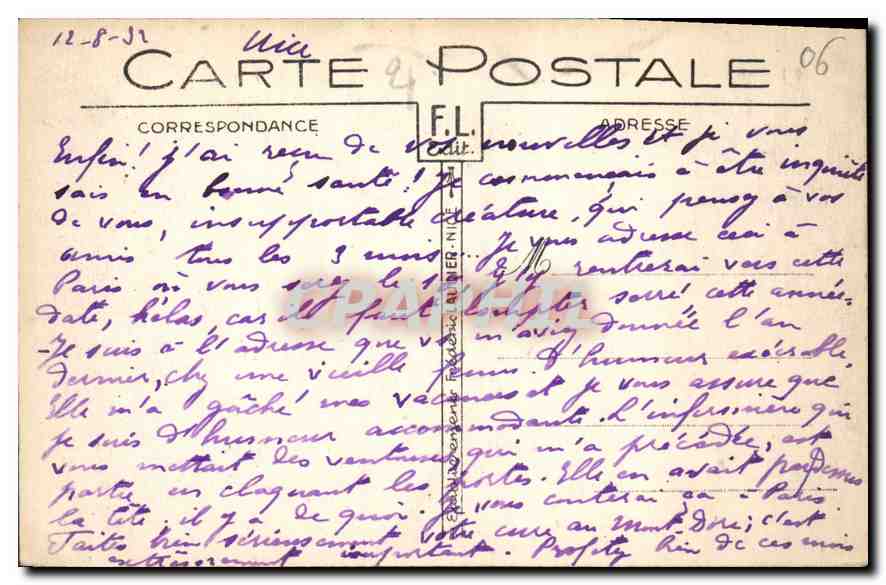 12-8-32 Nice
06
CARTE POSTALE
CORRESPONDANCE
F.L. Edit.
ADRESSE
Enfin! j'ai reçu de vos nouvelles et je vous
sais en bonne santé! Je commençais à être inquiète
de vous, insupportable créature, qui pensez à vos
amis tous les 3 mois... Je vous adresse ceci à
Paris où vous serez le rentrerai vers cette
date, hélas, car il faut compter serré cette année.
-Je suis à l'adresse que vous m'aviez donnée l'an
dernier, chez une vieille femme d'humeur exécrable.
Elle m'a gâché mes vacances et je vous assure que
je suis d'humeur accommodante. L'infirmière qui
vous mettait des ventouses, qui m'a précédée, est
partie en claquant les portes. Elle en avait par dessus
la tête il y a de quoi. Je vous conterai ça à Paris
Faites bien sérieusement votre cure au Mont Dore; c'est
extrêmement important. Profitez bien de ces mois
Frédéric LAUGIER - NICE
GRAPHTL